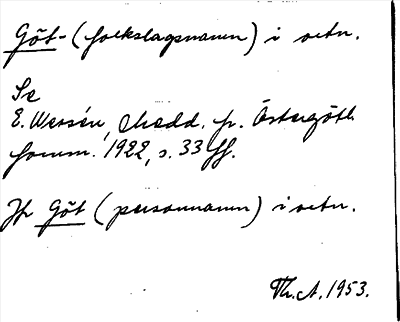 Göt- (folkslagsnamn) i ortn.
Se
E. Wessén, Medd. fr. Östergötl.
fornm. 1922, s. 33 ff.
Jfr Göt (personnamn) i ortn.
Th. A. 1953.